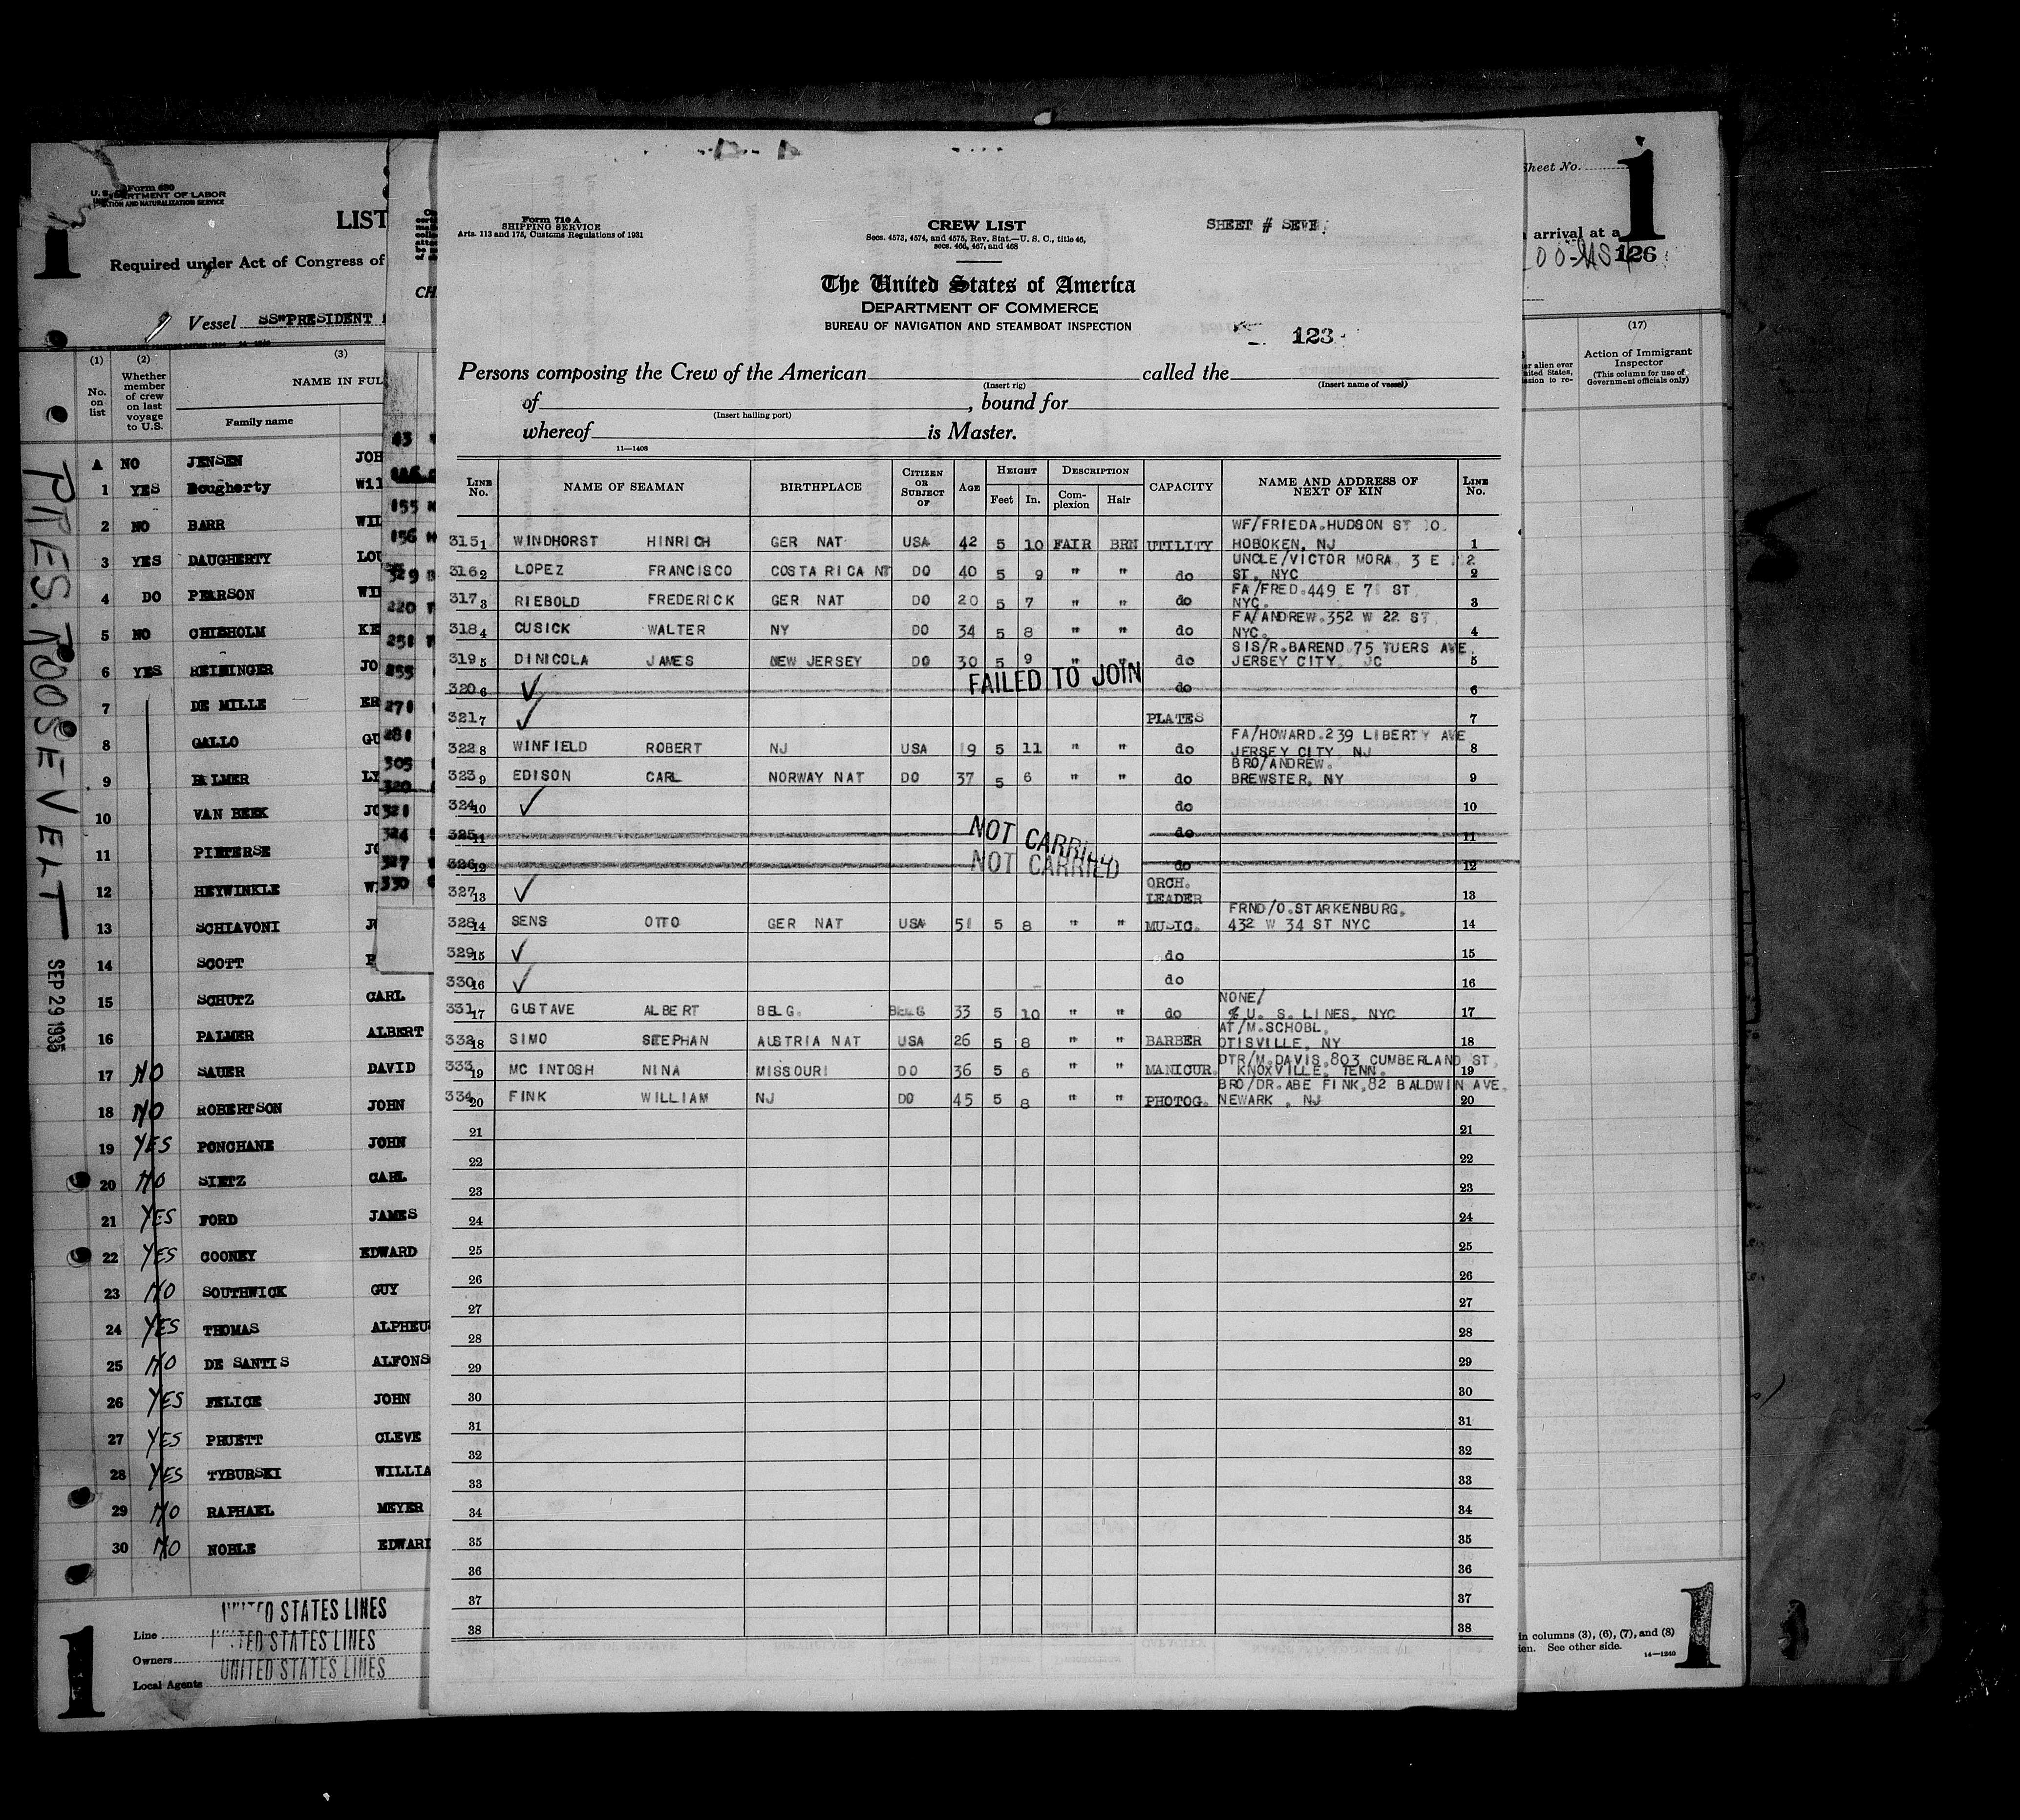 Form 680
U. S. DEPARTMENT OF LABOR
IMMIGRATION AND NATURALIZATION SERVICE
1
LIST
Required under Act of Congress of
Vessel SS"PRESIDENT
(1) (2) (3)
No. on list
Whether member of crew on last voyage to U.S.
NAME IN FUL
Family name
A NO JENSEN JOH
1 YES Dougherty Wil
2 NO BARR WIL
3 YES DAUGHERTY LOU
4 DO PEARSON WIL
5 NO CHISHOLM KE
6 YES REIMINGER JO
7 DE MILLE ER
8 GALLO GU
9 PALMER LY
10 VAN BEEK JO
11 PIETERSE JO
12 HEYWINKLE W
13 SCHIAVONI J
14 SCOTT
15 SCHUTZ CARL
16 PALMER ALBERT
17 NO SAUER DAVID
18 NO ROBERTSON JOHN
19 YES PONCHANE JOHN
20 NO SIETZ CARL
21 YES FORD JAMES
22 YES COONEY EDWARD
23 NO SOUTHWICK GUY
24 YES THOMAS ALPHEUS
25 NO DE SANTIS ALFONS
26 YES FELICE JOHN
27 YES PRUETT CLEVE
28 YES TYBURSKI WILLIA
29 NO RAPHAEL MEYER
30 NO NOBLE EDWARD
PRES. ROOSEVELT
SEP 29 1935
1
Line UNITED STATES LINES
Owners UNITED STATES LINES
Local Agents UNITED STATES LINES
CH
43
155
156
329
220
251
255
271
281
305
320
321
324
327
330
Form 710 A
SHIPPING SERVICE
Arts. 113 and 175, Customs Regulations of 1931
CREW LIST
Secs. 4573, 4574, and 4575, Rev. Stat.—U. S. C., title 46,
secs. 466, 467, and 468
SHEET # SEVE
The United States of America
DEPARTMENT OF COMMERCE
BUREAU OF NAVIGATION AND STEAMBOAT INSPECTION
123
Persons composing the Crew of the American called the
(Insert rig) (Insert name of vessel)
of , bound for
(Insert hailing port)
whereof is Master.
11—1408
LINE No. NAME OF SEAMAN BIRTHPLACE CITIZEN OR SUBJECT OF AGE HEIGHT Feet In. DESCRIPTION Complexion Hair CAPACITY NAME AND ADDRESS OF NEXT OF KIN LINE No.
WF/FRIEDA.HUDSON ST
315 1 WINDHORST HINRICH GER NAT USA 42 5 10 FAIR BRN UTILITY HOBOKEN, NJ 1
UNCLE/VICTOR MORA, 3 E 2
316 2 LOPEZ FRANCISCO COSTA RICA NT DO 40 5 9 " " do ST. NYC 2
FA/FRED.449 E 7 ST
317 3 RIEBOLD FREDERICK GER NAT DO 20 5 7 " " do NYC. 3
FA/ANDREW.352 W 22 ST
318 4 CUSICK WALTER NY DO 34 5 8 " " do NYC. 4
SIS/R.BAREND 75 TUERS AVE.
319 5 DINICOLA JAMES NEW JERSEY DO 30 5 9 " " do JERSEY CITY JC 5
320 6 ✓ FAILED TO JOIN do 6
321 7 ✓ PLATES 7
FA/HOWARD.239 LIBERTY AVE
322 8 WINFIELD ROBERT NJ USA 19 5 11 " " do JERSEY CITY NJ 8
BRO/ANDREW.
323 9 EDISON CARL NORWAY NAT DO 37 5 6 " " do BREWSTER, NY 9
324 10 ✓ do 10
325 11 NOT CARRIED do 11
326 12 NOT CARRIED do 12
327 13 ✓ ORCH. LEADER 13
FRND/O.STARKENBURG,
328 14 SENS OTTO GER NAT USA 51 5 8 " " MUSIC. 432 W 34 ST NYC 14
329 15 ✓ do 15
330 16 ✓ do 16
NONE/
331 17 GUSTAVE ALBERT BELG. BELG 33 5 10 " " do % U. S. LINES, NYC 17
AT/M.SCHOBL,
332 18 SIMO STEPHAN AUSTRIA NAT USA 26 5 8 " " BARBER OTISVILLE, NY 18
DTR/M.DAVIS.803 CUMBERLAND ST,
333 19 MC INTOSH NINA MISSOURI DO 36 5 6 " " MANICUR. KNOXVILLE, TENN. 19
BRO/DR.ABE FINK,82 BALDWIN AVE.
334 20 FINK WILLIAM NJ DO 45 5 8 " " PHOTOG. NEWARK , NJ 20
21 21
22 22
23 23
24 24
25 25
26 26
27 27
28 28
29 29
30 30
31 31
32 32
33 33
34 34
35 35
36 36
37 37
38 38
Sheet No.
1
arrival at a
126
(17)
Action of Immigrant Inspector
(This column for use of Government officials only)
er alien ever
nited States,
ssion to re-
in columns (3), (6), (7), and (8)
ien. See other side.
14—1240
1